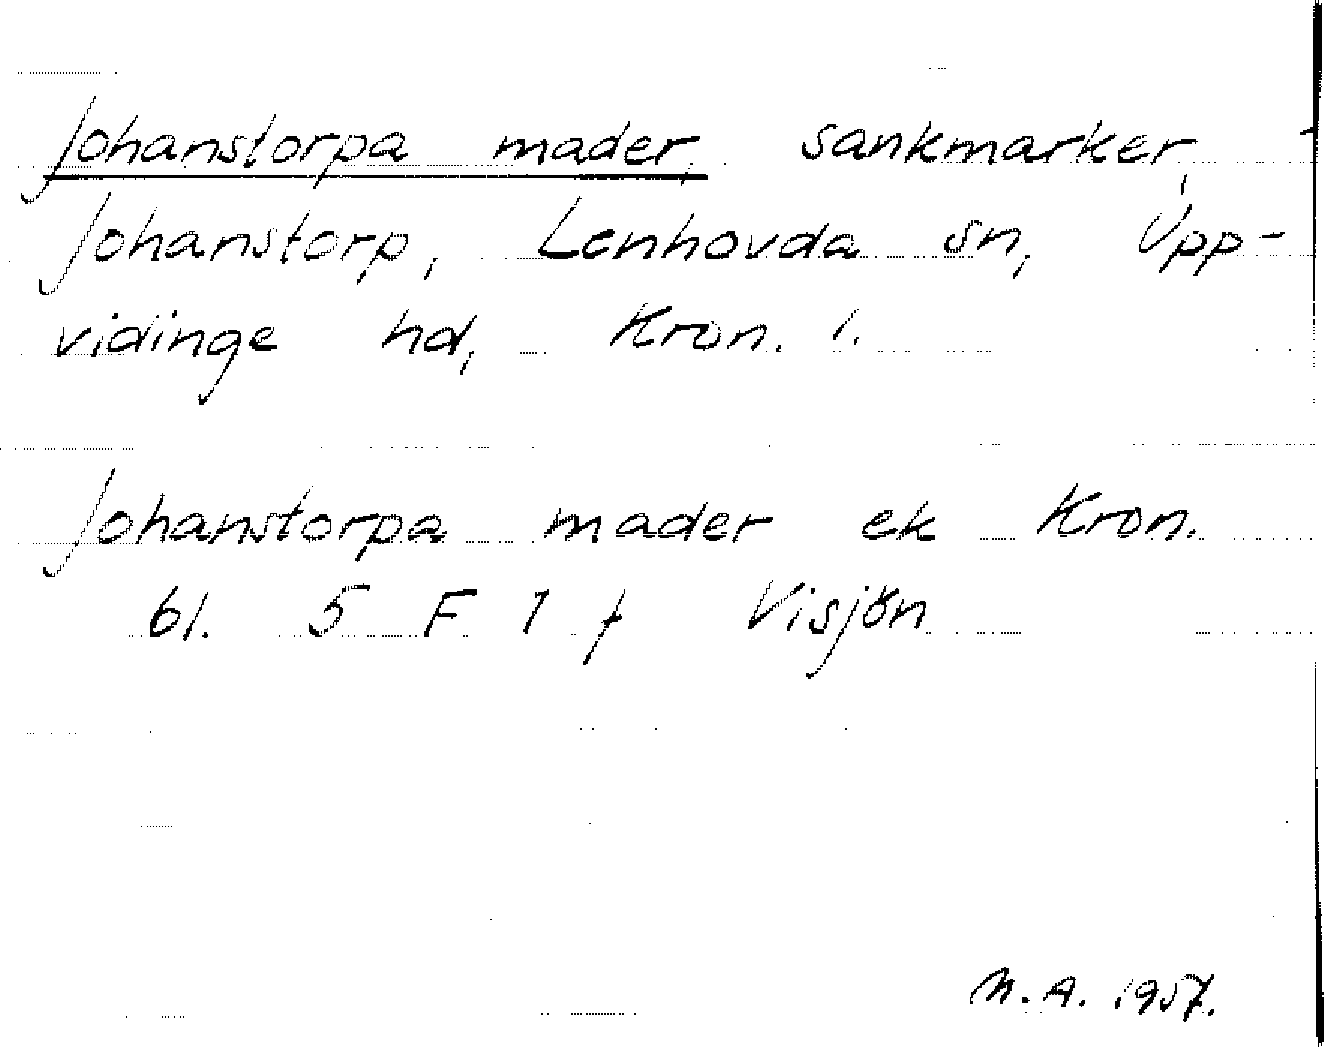 Johanstorpa mader, sankmarker,
Johanstorp, Lenhovda sn, Upp-
vidinge hd, Kron. l.
Johanstorpa mader ek Kron.
bl. 5 F 7 f Visjön
N.A. 1957.